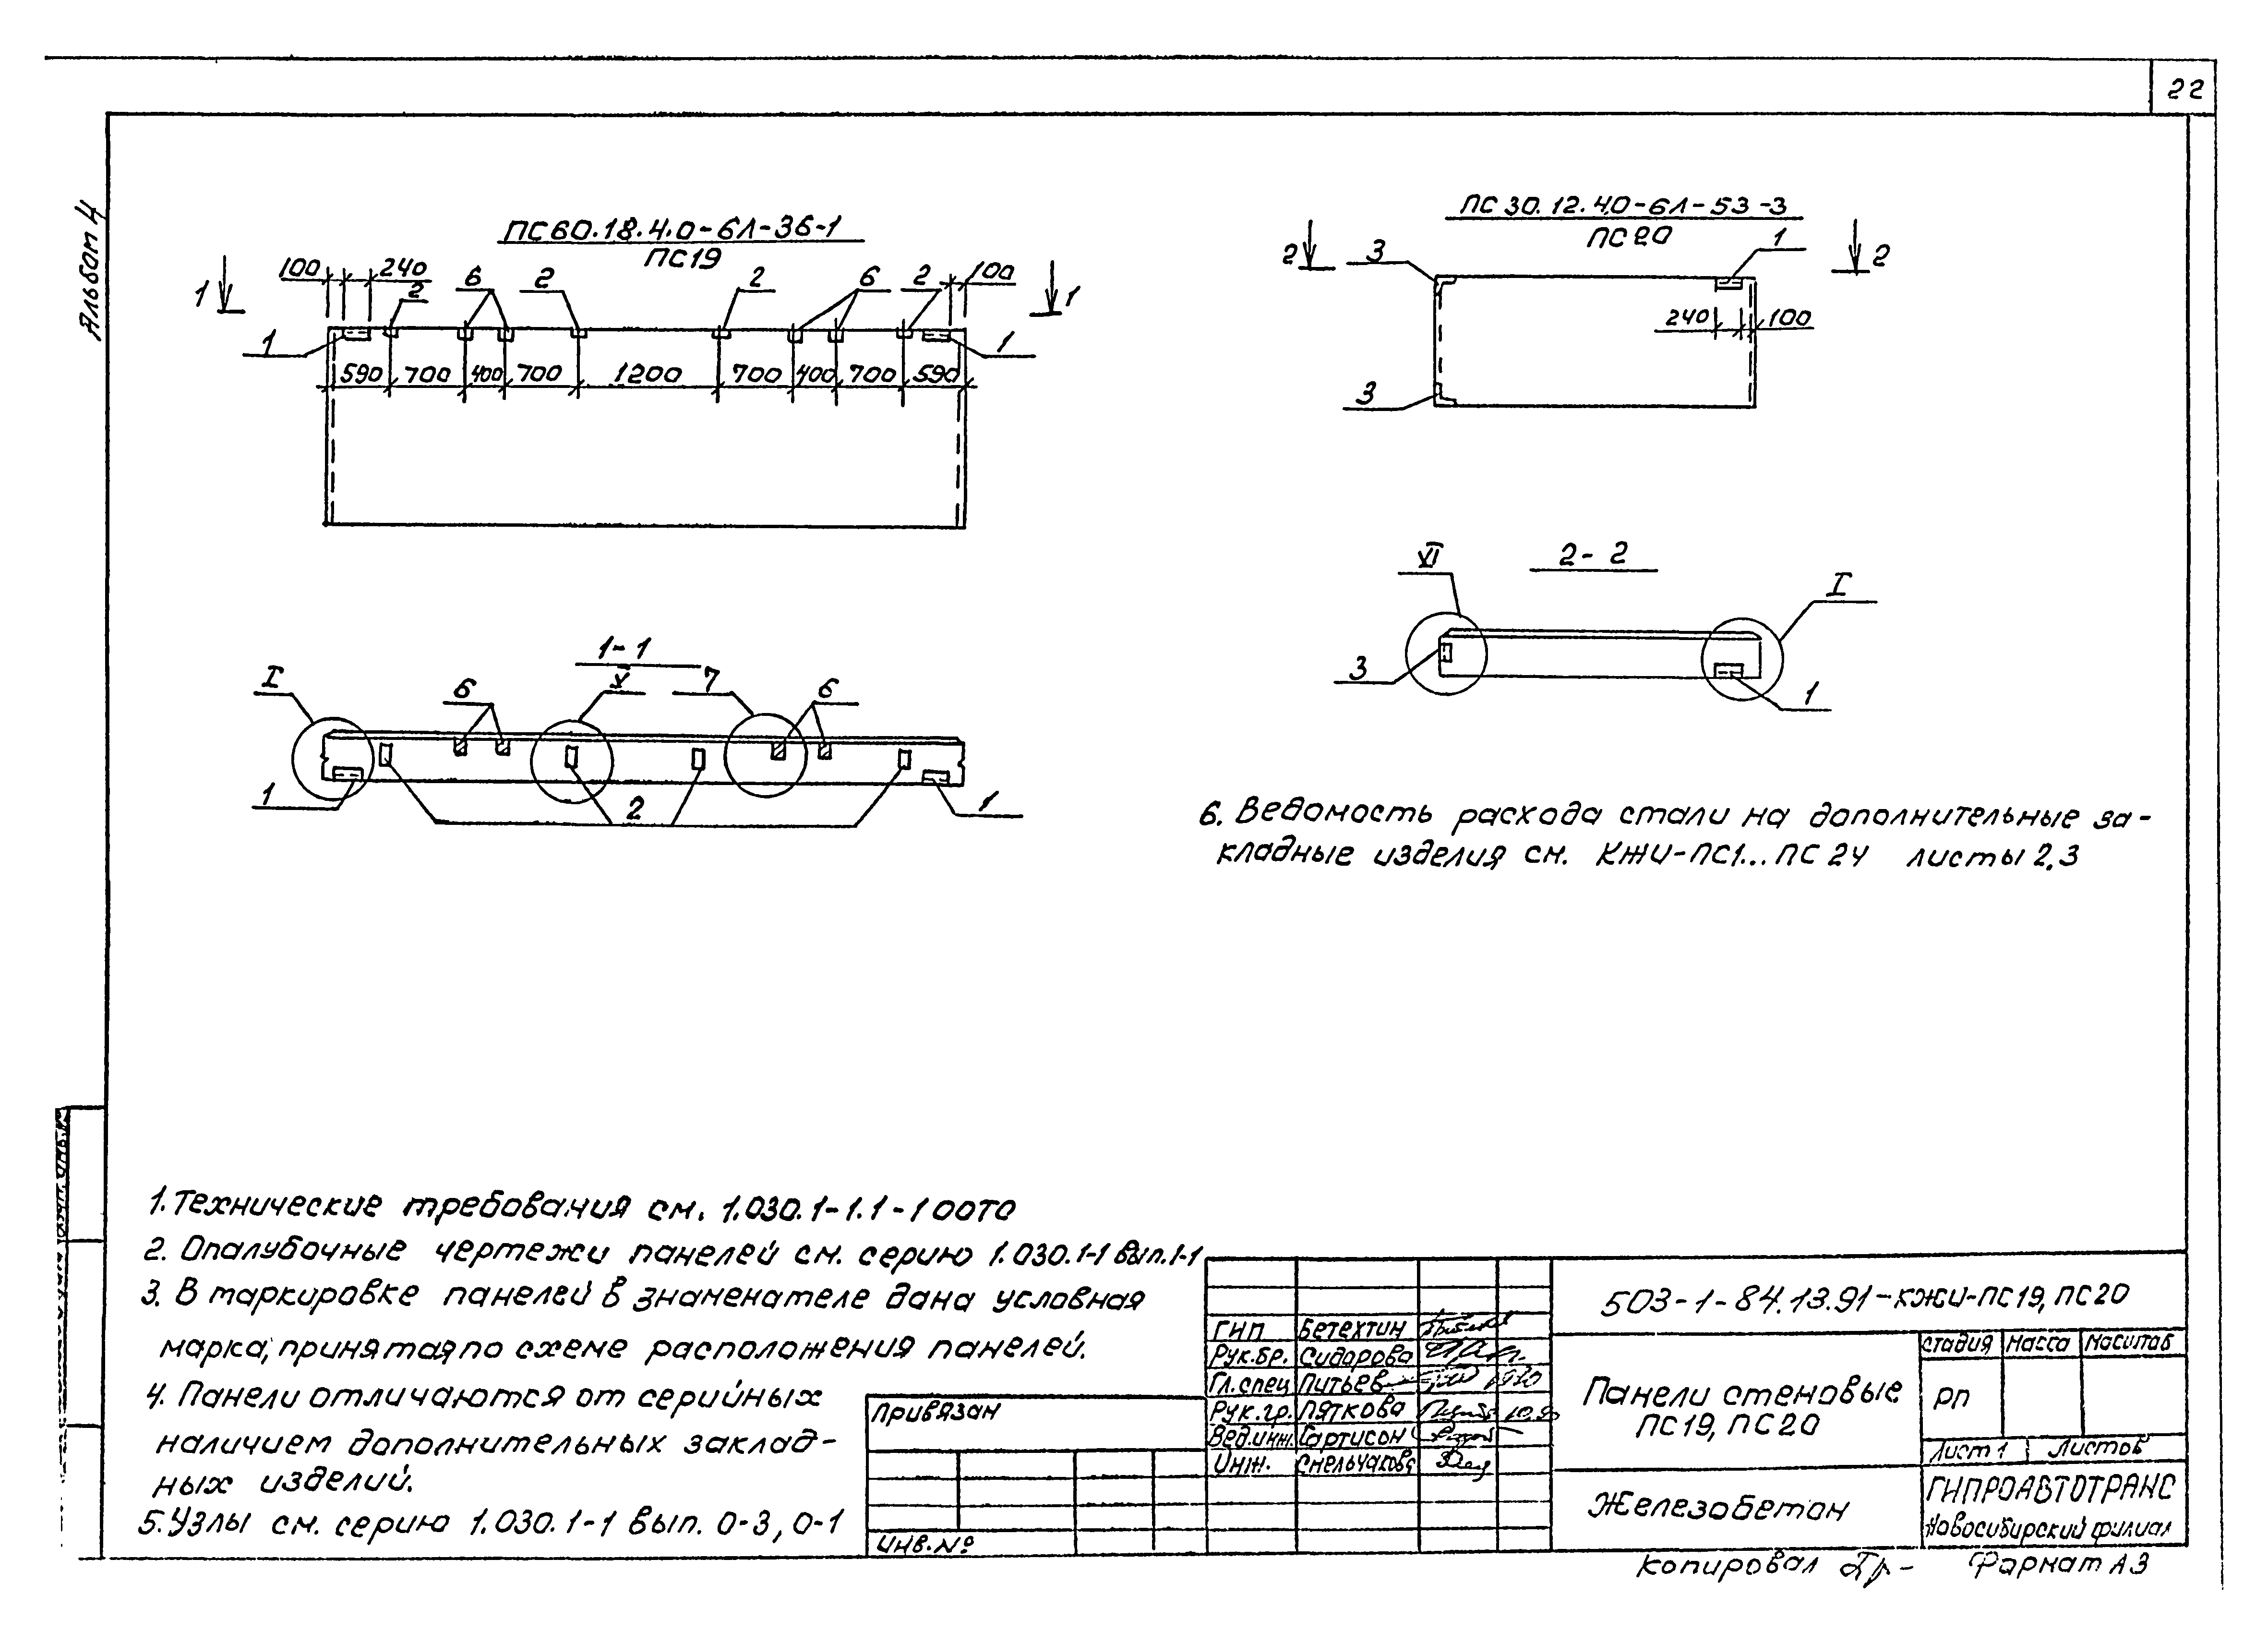 22
Альбом 4
ПС60.18.4.0-6Л-36-1
ПС19
1
100
240
2
6
2
2
6
2
100
1
1
1
590
700
400
700
1200
700
400
700
590
ПС30.12.4.0-6Л-53-3
ПС20
2
3
1
2
240
100
3
1-1
I
6
X
7
6
1
2
1
2-2
XI
I
3
1
6. Ведомость расхода стали на дополнительные за-
кладные изделия см. КЖИ-ПС1...ПС24 листы 2,3
1. Технические требования см. 1.030.1-1.1-100ТО
2. Опалубочные чертежи панелей см. серию 1.030.1-1 вып.1-1
3. В маркировке панелей в знаменателе дана условная
марка, принятая по схеме расположения панелей.
4. Панели отличаются от серийных
наличием дополнительных заклад-
ных изделий.
5. Узлы см. серию 1.030.1-1 вып. 0-3, 0-1
Привязан
Инв.№
ГИП Бетехтин
Рук.бр. Сидорова
Гл.спец Питьев
Рук.гр. Пяткова 10.90
Вед.инж. Гартисон
Инж. Смельчакова
503-1-84.13.91-КЖИ-ПС19, ПС20
Панели стеновые
ПС19, ПС20
Стадия Масса Масштаб
РП
Лист 1 Листов
Железобетон
ГИПРОАВТОТРАНС
Новосибирский филиал
Копировал
Формат А3